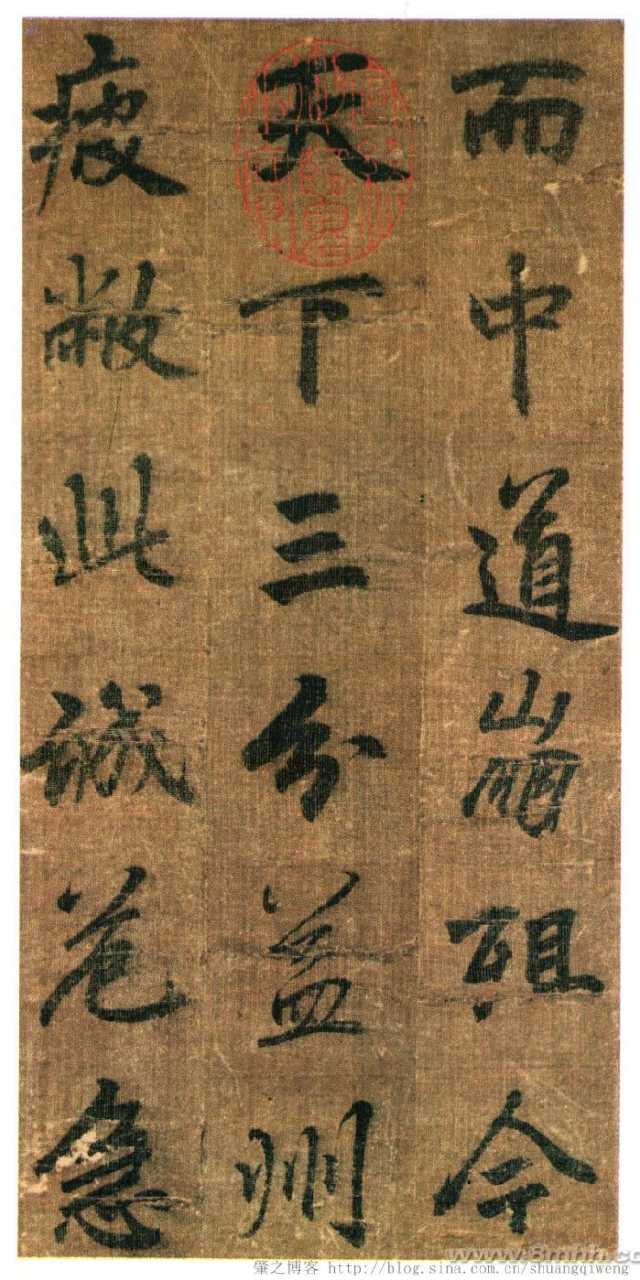 而中道崩殂今
天下三分益州
疲敝此誠危急
www.8mhh.co
肇之博客 http://blog.sina.com.cn/shuangqiweng